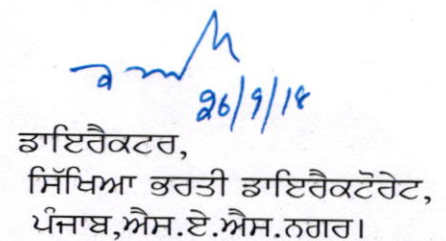 26/9/18
ਡਾਇਰੈਕਟਰ,
ਸਿੱਖਿਆ ਭਰਤੀ ਡਾਇਰੈਕਟੋਰੇਟ,
ਪੰਜਾਬ,ਐਸ.ਏ.ਐਸ.ਨਗਰ।